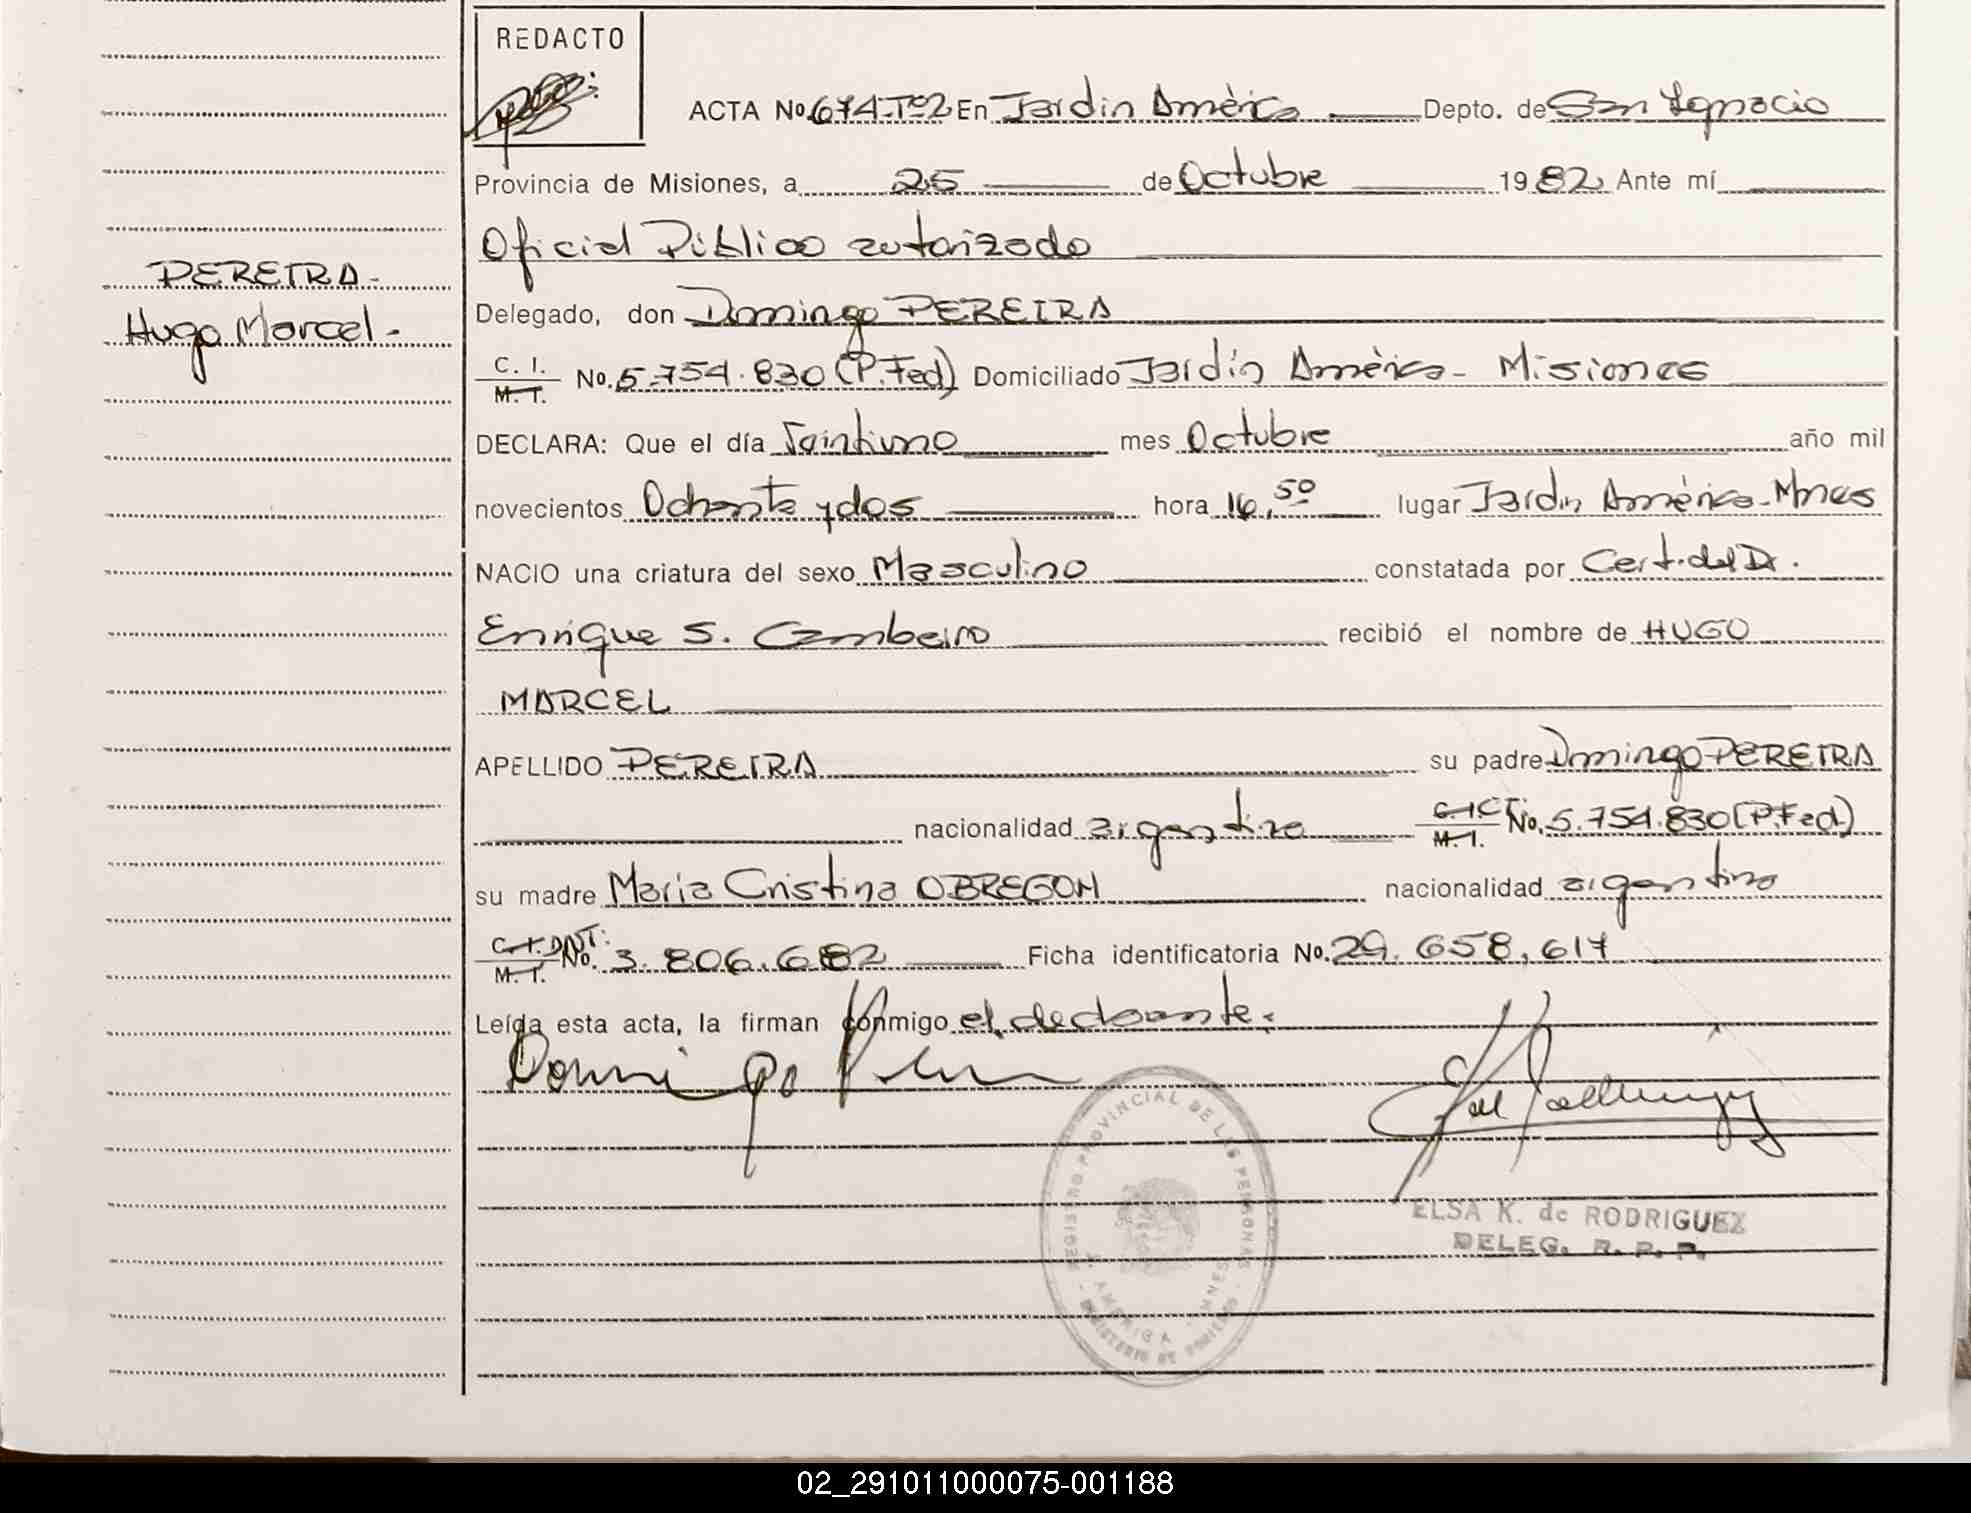 REDACTO
ACTA No. 674-Tº2 En Jardin Amèrica Depto. de San Ignacio
Provincia de Misiones, a 25 de Octubre 1982 Ante mí
Oficial Público autorizado
PEREIRA-
Hugo Marcel-
Delegado, don Domingo PEREIRA
C. I.
M. I. No. 5.754.830 (P.Fed) Domiciliado Jardín Amèrica- Misiones
DECLARA: Que el día Veintiuno mes Octubre año mil
novecientos Ochenta y dos hora 16,50 lugar Jardin Amèrica-Mnes
NACIO una criatura del sexo Masculino constatada por Cert. del Dr.
Enrique S. Cambeiro recibió el nombre de HUGO
MARCEL
APELLIDO PEREIRA su padre Domingo PEREIRA
nacionalidad argentina C.I. M. I. No. 5.754.830 (P.Fed)
su madre Maria Cristina OBREGON nacionalidad argentina
C. I. DNI: M. I. No. 3.806.682 Ficha identificatoria No. 29.658,617
Leída esta acta, la firman conmigo el declarante.
Domingo
REGISTRO PROVINCIAL DE LAS PERSONAS
AMERICA - MNES
MINISTERIO DE GOBIERNO
ELSA K. de RODRIGUEZ
DELEG. R. P. P.
02_291011000075-001188